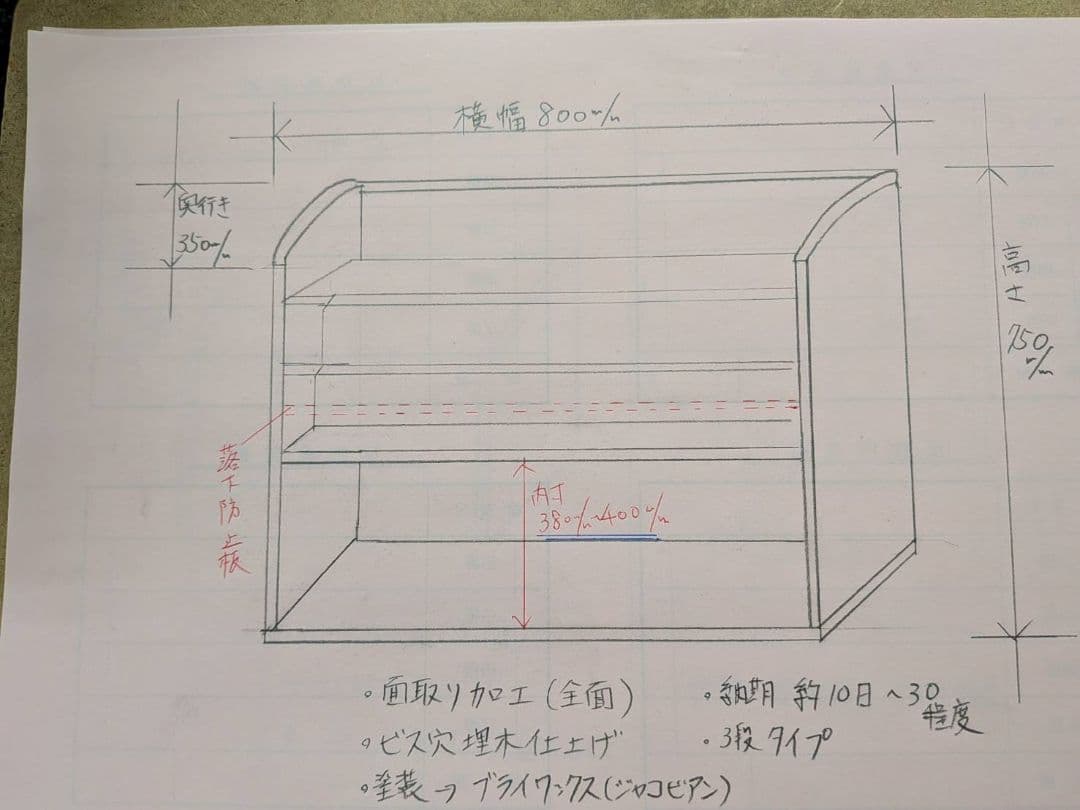 横幅 800m/m
奥行き
350m/m
高さ
750m/m
落下防止板
内寸
380m/m~400m/m
。面取り加工(全面)
。ビス穴埋木仕上げ
。塗装→ブライワックス(ジャコビアン)
。納期 約10日~30
程度
。3段タイプ